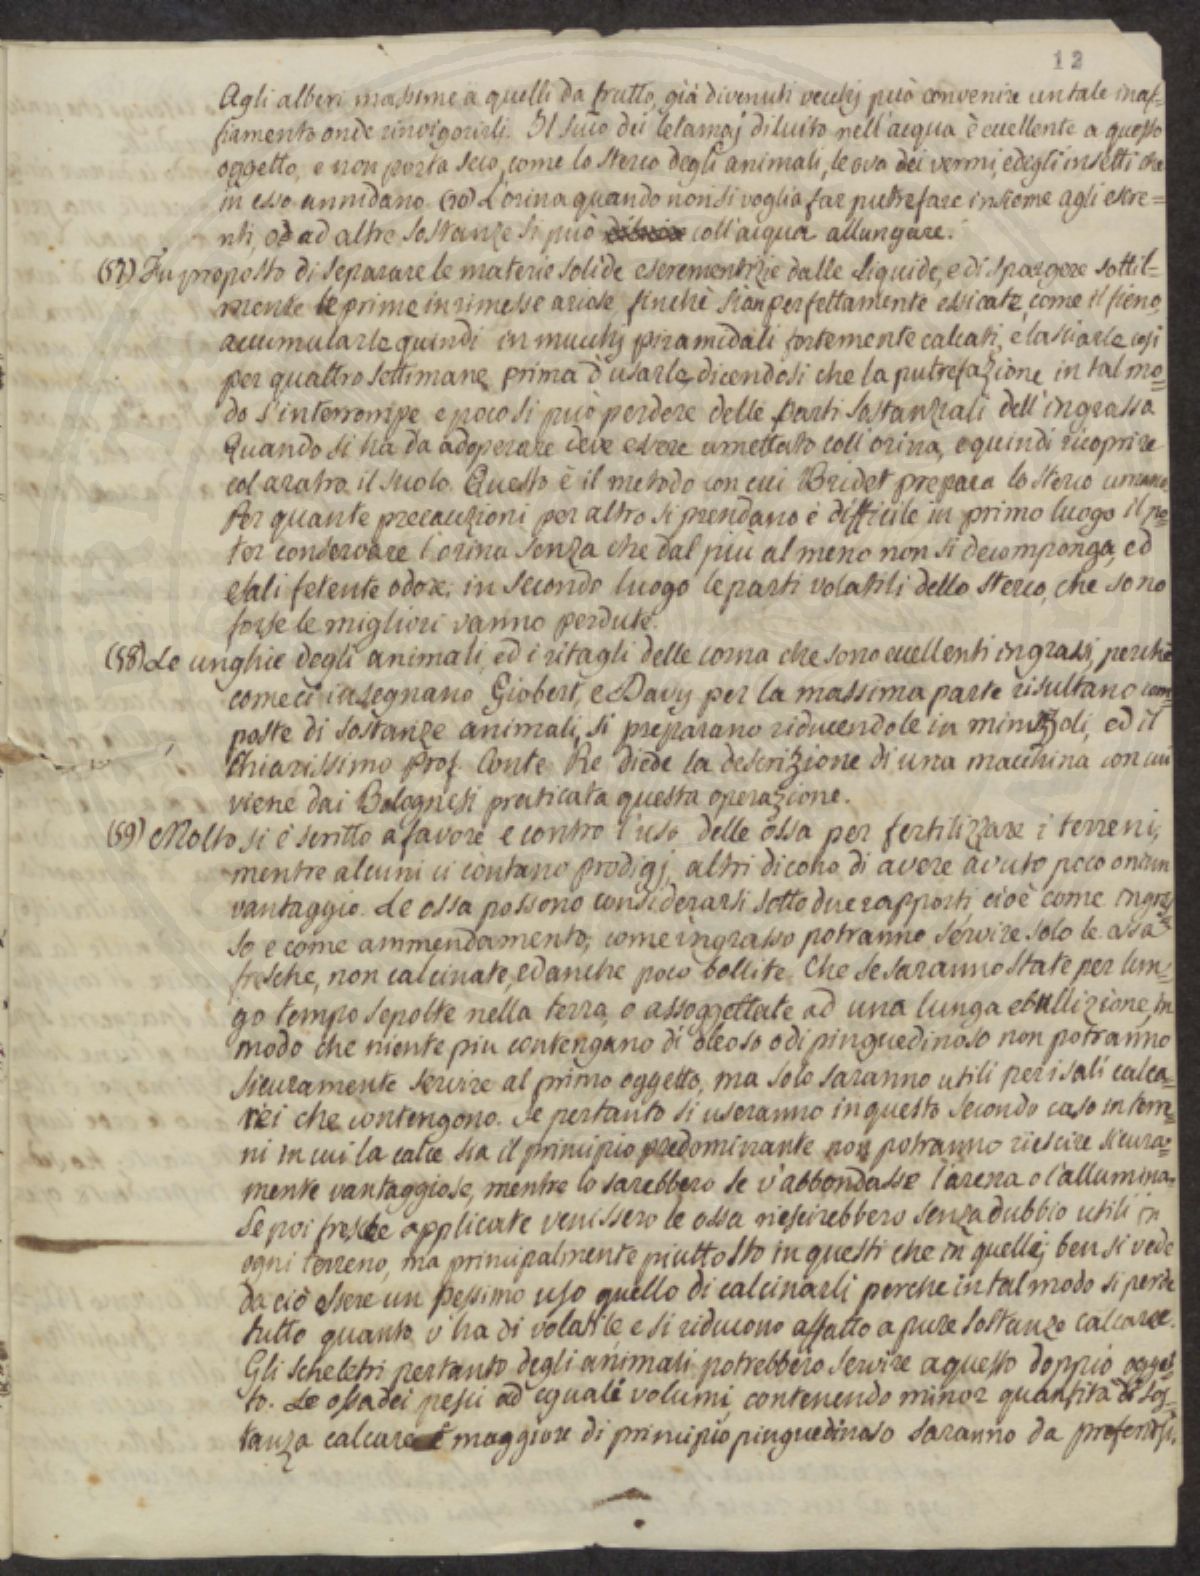 12
Agli alberi massime a quelli da frutto, già divenuti vecchj può convenire un tale inaf-
fiamento onde rinvigorirli. Il succo dei letamaj diluito nell'acqua è eccellente a questo
oggetto, e non porta seco, come lo sterco degli animali, le ova dei vermi, e degli insetti che
in esso annidano. (20) L'orina quando non si voglia far putrefare insieme agli escre=
nti, od ad altre sostanze si può coll'acqua allungare.
(57) Fu proposto di separare le materie solide escrementizie dalle liquide, e di spargere sottil-
mente le prime in rimesse ariose finchè sian perfettamente essicate, come il fieno,
accumularle quindi in mucchj piramidali fortemente calcati, e lasciarle così
per quattro settimane prima d'usarle, dicendosi che la putrefazione in tal mo=
do s'interrompe e poco si può perdere delle parti sostanziali dell'ingrasso
Quando si ha da adoperare deve essere umettato coll'orina, e quindi ricoprire
col aratro il suolo. Questo è il metodo con cui Bridet prepara lo sterco umano
Per quante precauzioni per altro si prendano è difficile in primo luogo il po=
ter conservare l'orina senza che dal più al meno non si decomponga, ed
esali fetente odore: in secondo luogo le parti volatili dello sterco, che sono
forse le migliori vanno perdute.
(58) Le unghie degli animali, ed i ritagli delle corna che sono eccellenti ingrassi, perchè
come ci insegnano Giobert, e Davy per la massima parte risultano com
poste di sostanze animali, si preparano riducendole in minuzzoli, ed il
Chiarissimo Prof. Conte Re diede la descrizione di una macchina con cui
viene dai Bolognesi praticata questa operazione.
(59) Molto si è scritto a favore e contro l'uso delle ossa per fertilizzare i terreni,
mentre alcuni ci contano prodigj, altri dicono di avere avuto poco o niun
vantaggio. Le ossa possono considerarsi sotto due rapporti, cioè come ingras
so e come ammendamento; come ingrasso potranno servire solo le ossa
fresche, non calcinate, ed anche poco bollite. Che se saranno state per lun=
go tempo sepolte nella terra, o assoggettate ad una lunga ebullizione, in
modo che niente più contengano di oleoso o di pinguedinoso non potranno
sicuramente servire al primo oggetto, ma solo saranno utili per i sali calca=
rei che contengono. Se pertanto si useranno in questo secondo caso in terre=
ni in cui la calce sia il principio predominante non potranno riescire sicura=
mente vantaggiose, mentre lo sarebbero se v'abbondasse l'arena o l'allumina.
Se poi fresche applicate venissero le ossa riescirebbero senza dubbio utili in
ogni terreno, ma principalmente piuttosto in questi che in quelli; ben si vede
da ciò essere un pessimo uso quello di calcinarli perche in tal modo si perde
tutto quanto v'ha di volatile e si riducono affatto a pure sostanze calcaree.
Gli scheletri pertanto degli animali potrebbero servire a questo doppio ogget
to. Le ossa dei pesci ad eguali volumi, contenendo minor quantità di sos=
tanza calcare e maggiore di principio pinguedinoso saranno da preferirsi.